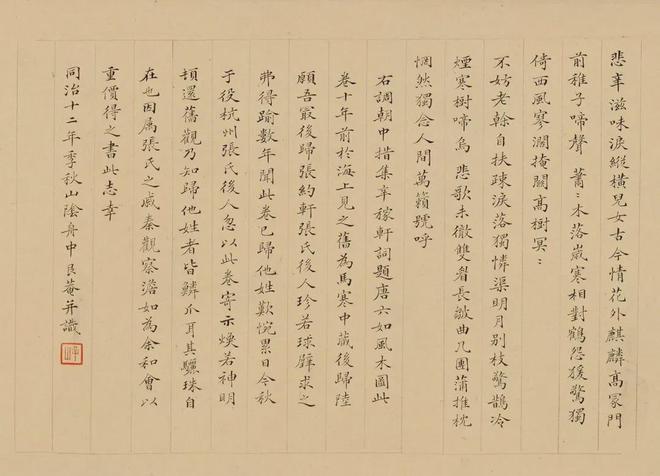 悲辛滋味淚縱橫兒女古今情花外麒麟高冢門
前稚子啼聲蕭〻木落歲寒相對鶴怨猨驚獨
倚西風寥濶掩關高樹冥〻
不妨老榦自扶疎淚落獨憐渠明月別枝驚鵲冷
煙寒樹啼烏悲歌未徹雙眉長歛曲几團蒲推枕
惘然獨念人間萬籟號呼
右調朝中措集辛稼軒詞題唐六如風木圖此
卷十年前於海上見之舊為馬寒中藏後歸陸
願吾冣後歸張約軒張氏後人珍若球璧求之
弗得踰數年聞此卷已歸他姓歎惋累日今秋
于役杭州張氏後人忽以此卷寄示煥若神明
頓還舊觀乃知歸他姓者皆鱗爪耳其驪珠自
在也因屬張氏之戚秦觀察澹如為余和會以
重價得之書此志幸
同治十二年季秋山陰舟中艮菴并識